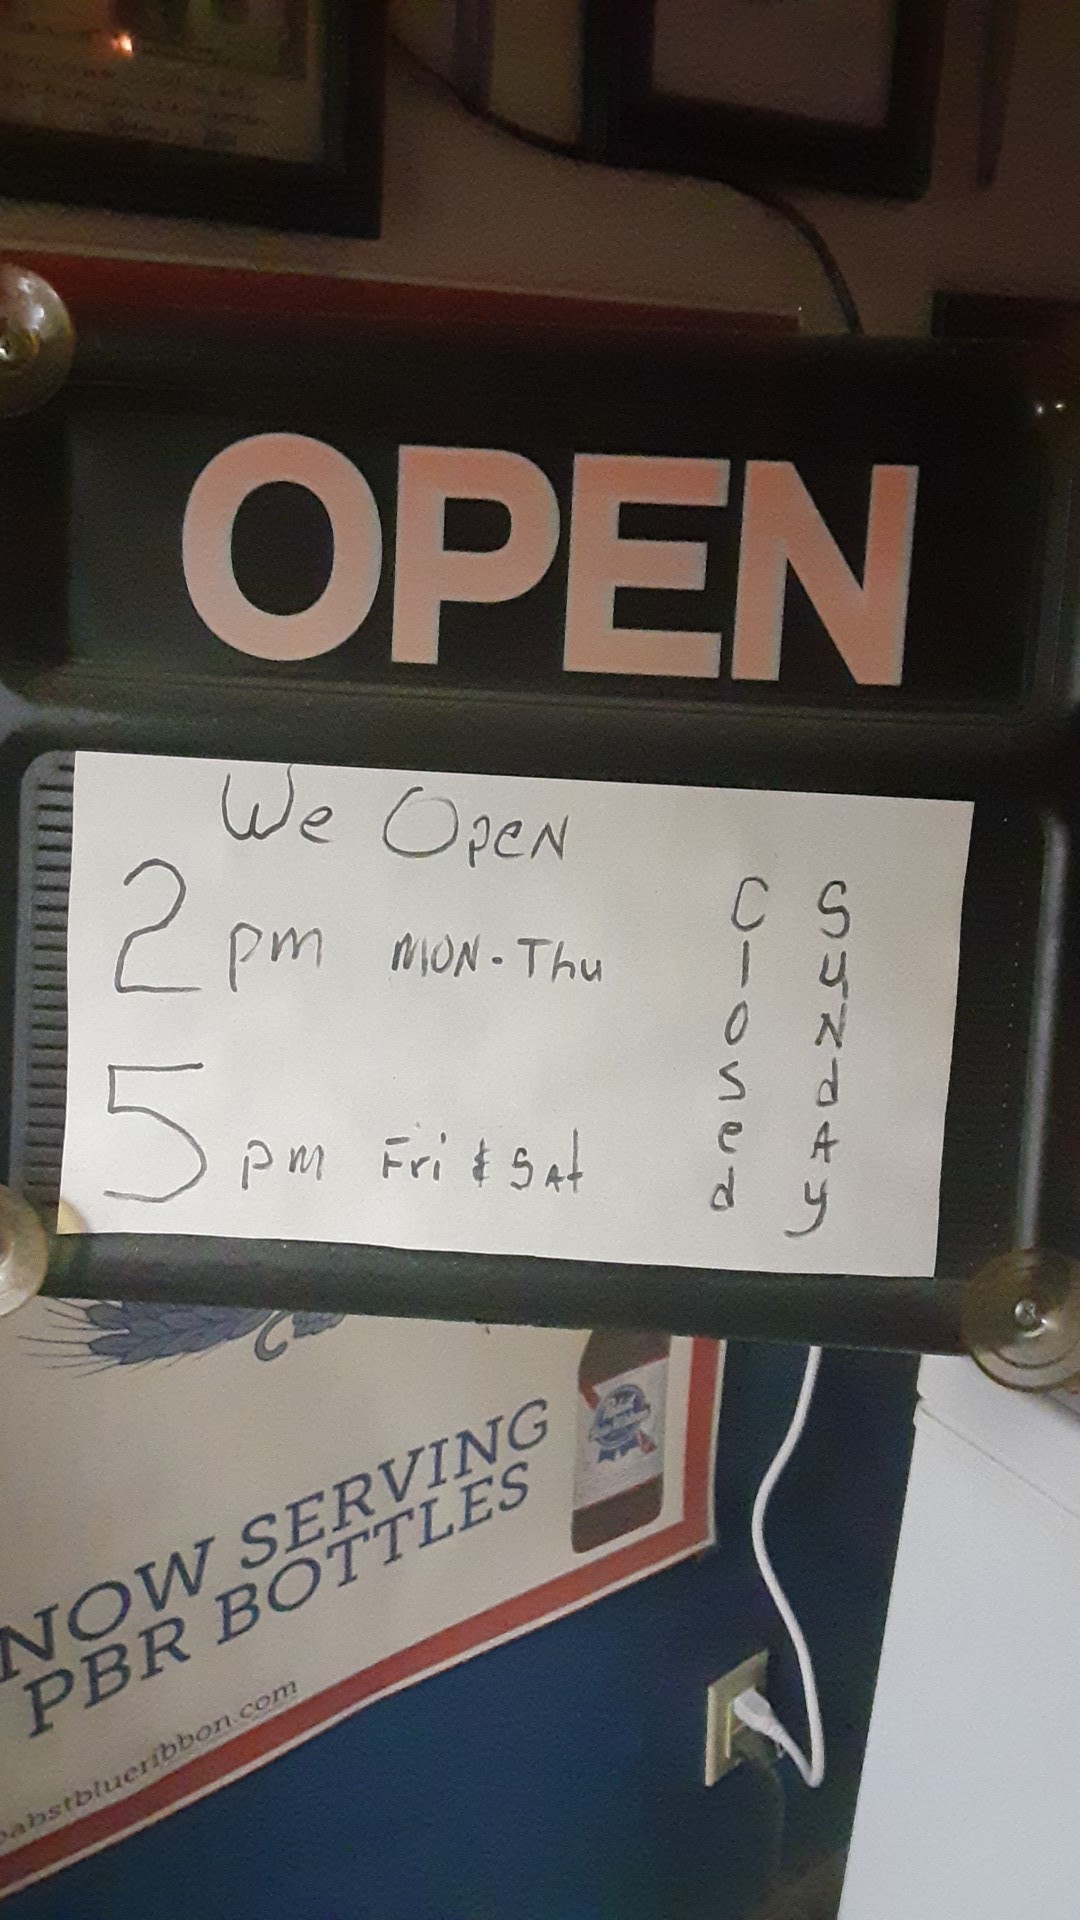 OPEN
We Open
2 pm MON-Thu
5 pm Fri & SAt
Closed
SuNdAy
NOW SERVING
PBR BOTTLES
pabstblueribbon.com